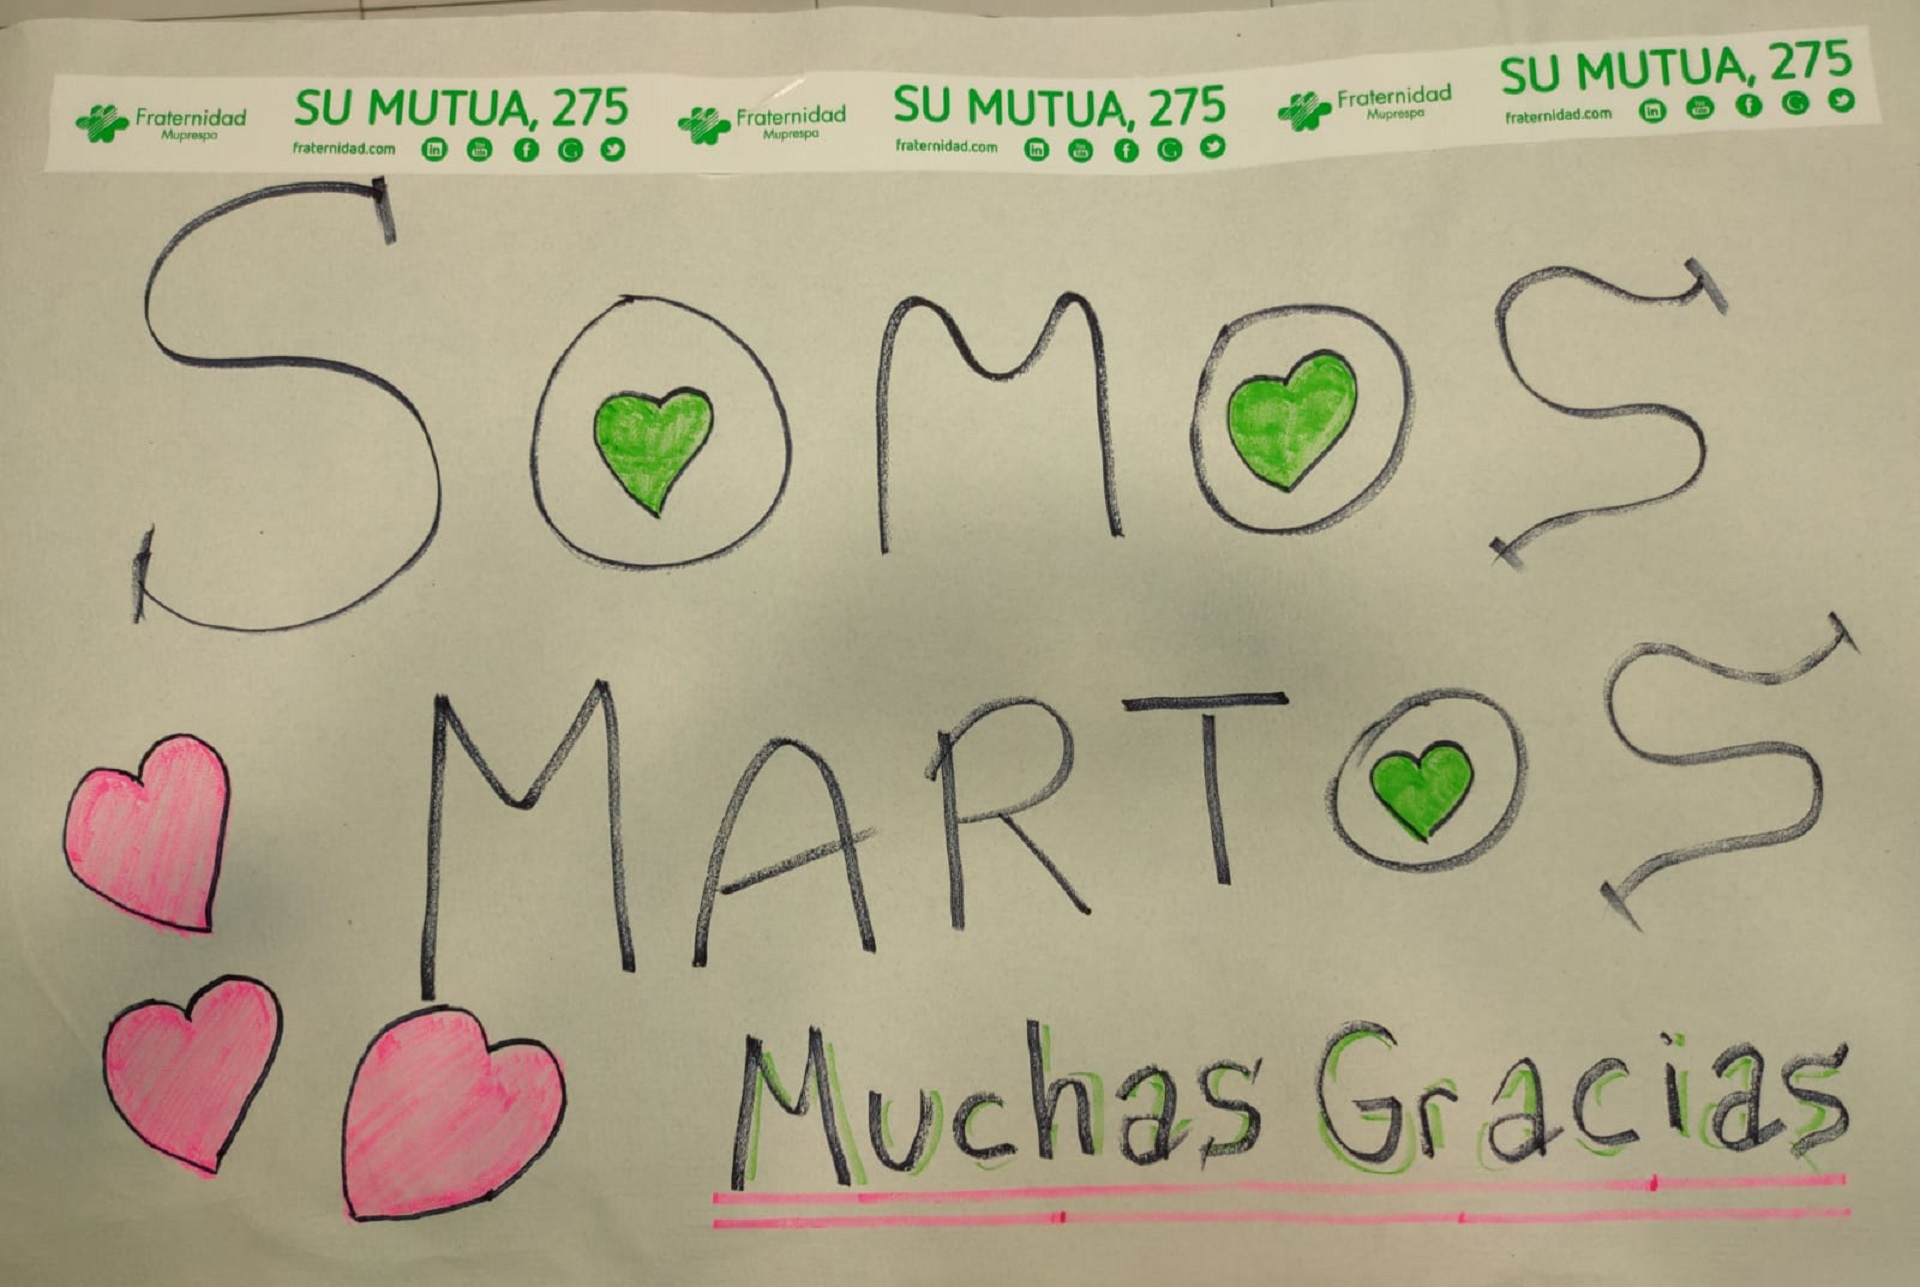 Fraternidad Muprespa SU MUTUA, 275 fraternidad.com
Fraternidad Muprespa SU MUTUA, 275 fraternidad.com
Fraternidad Muprespa SU MUTUA, 275 fraternidad.com
SOMOS
MARTOS
Muchas Gracias